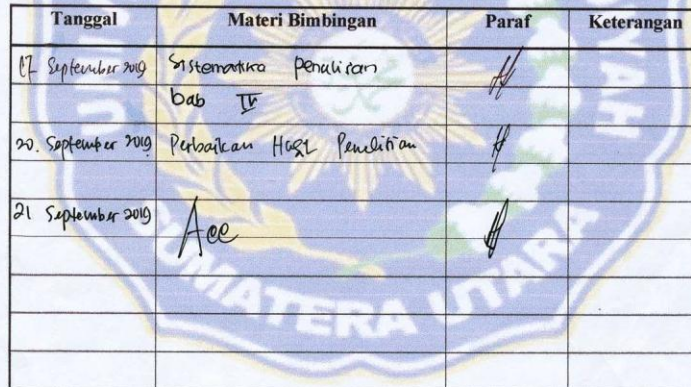 Tanggal Materi Bimbingan Paraf Keterangan
17 September 2019 Sistematika penulisan
bab IV
20. September 2019 Perbaikan Hasil Penelitian
21 September 2019 Acc
SUMATERA UTARA